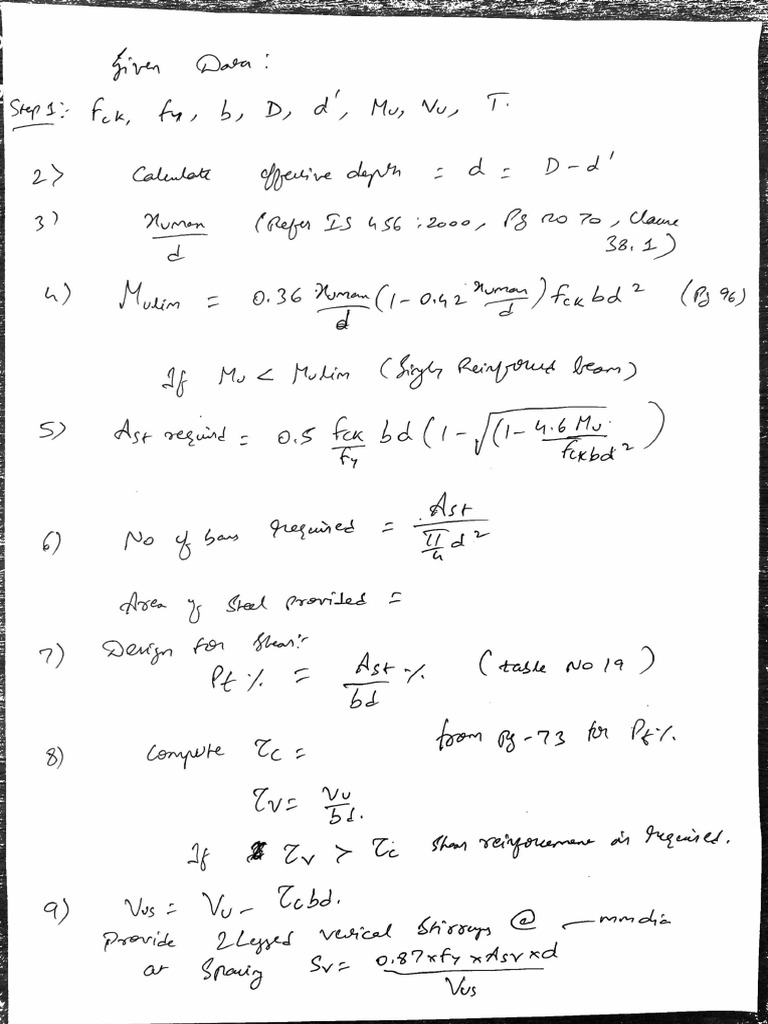 Given Data:
Step 1:- fck, fy, b, D, d', Mu, Vu, T.
2> Calculate effective depth = d = D - d'
3) xumax/d (Refer IS 456:2000, Pg no 70, Clause 38.1)
4) Mulim = 0.36 xumax/d (1 - 0.42 xumax/d) fck bd² (Pg 96)
If Mu < Mulim (Singly Reinforced beam)
5) Ast required = 0.5 fck/fy bd (1 - √(1 - 4.6 Mu/fckbd²))
6) No of bars required = Ast/(π/4 d²)
Area of Steel provided =
7) Design for Shear:-
Pt % = Ast/bd % (table No 19)
8) Compute τc = from pg-73 for Pt%
τv = Vu/bd.
If τv > τc Shear reinforcement is required.
9) Vus = Vu - τcbd.
Provide 2 Legged vertical Stirrups @ — mm dia
at Spacing Sv = 0.87×fy×Asv×d/Vus